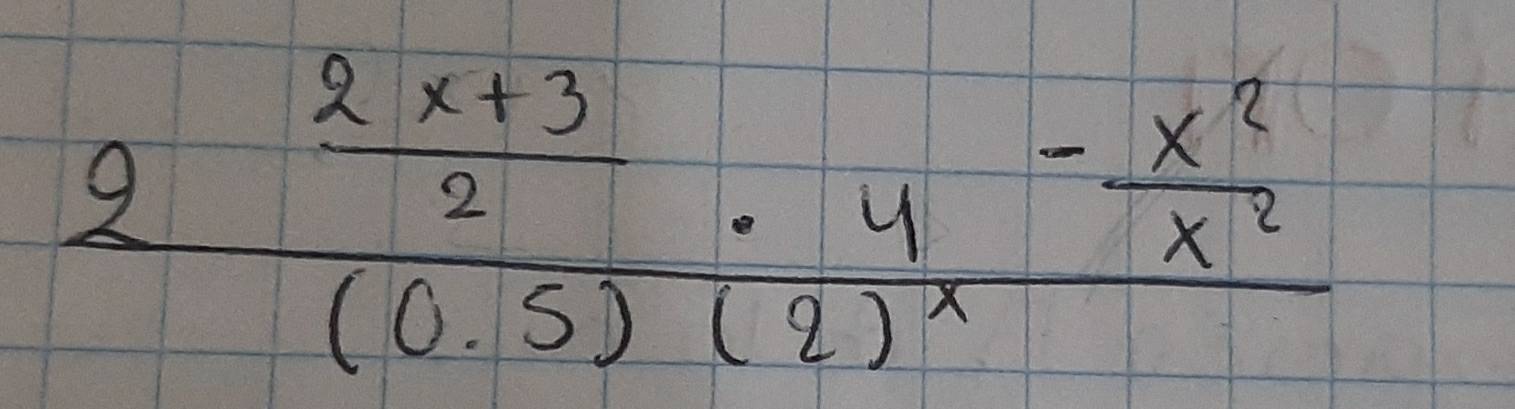 2^{\frac{2x+3}{2}} \cdot 4^{-\frac{x^2}{x^2}}
(0.5) (2)^x